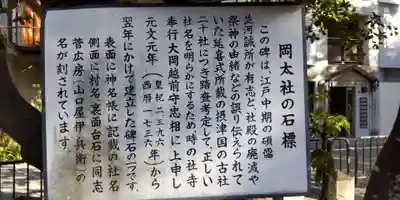 岡太社の石標
この碑は、江戸中期の碩儒
並河誠所が有志と、社殿の廃滅や
祭神の由緒などの誤り伝えられて
いた延喜式所載の摂津国の古社
二十社につき踏査考定して、正しい
社名を明らかにするため時の社寺
奉行大岡越前守忠相に上申し
元文元年(皇紀二三九六 西暦一七三六年)から
翌年にかけて建立した碑石の一つです。
表面に神名帳に記載の社名
側面に村名、裏面台石に同志
菅広房(山口屋伊兵衛)の
名が刻されています。